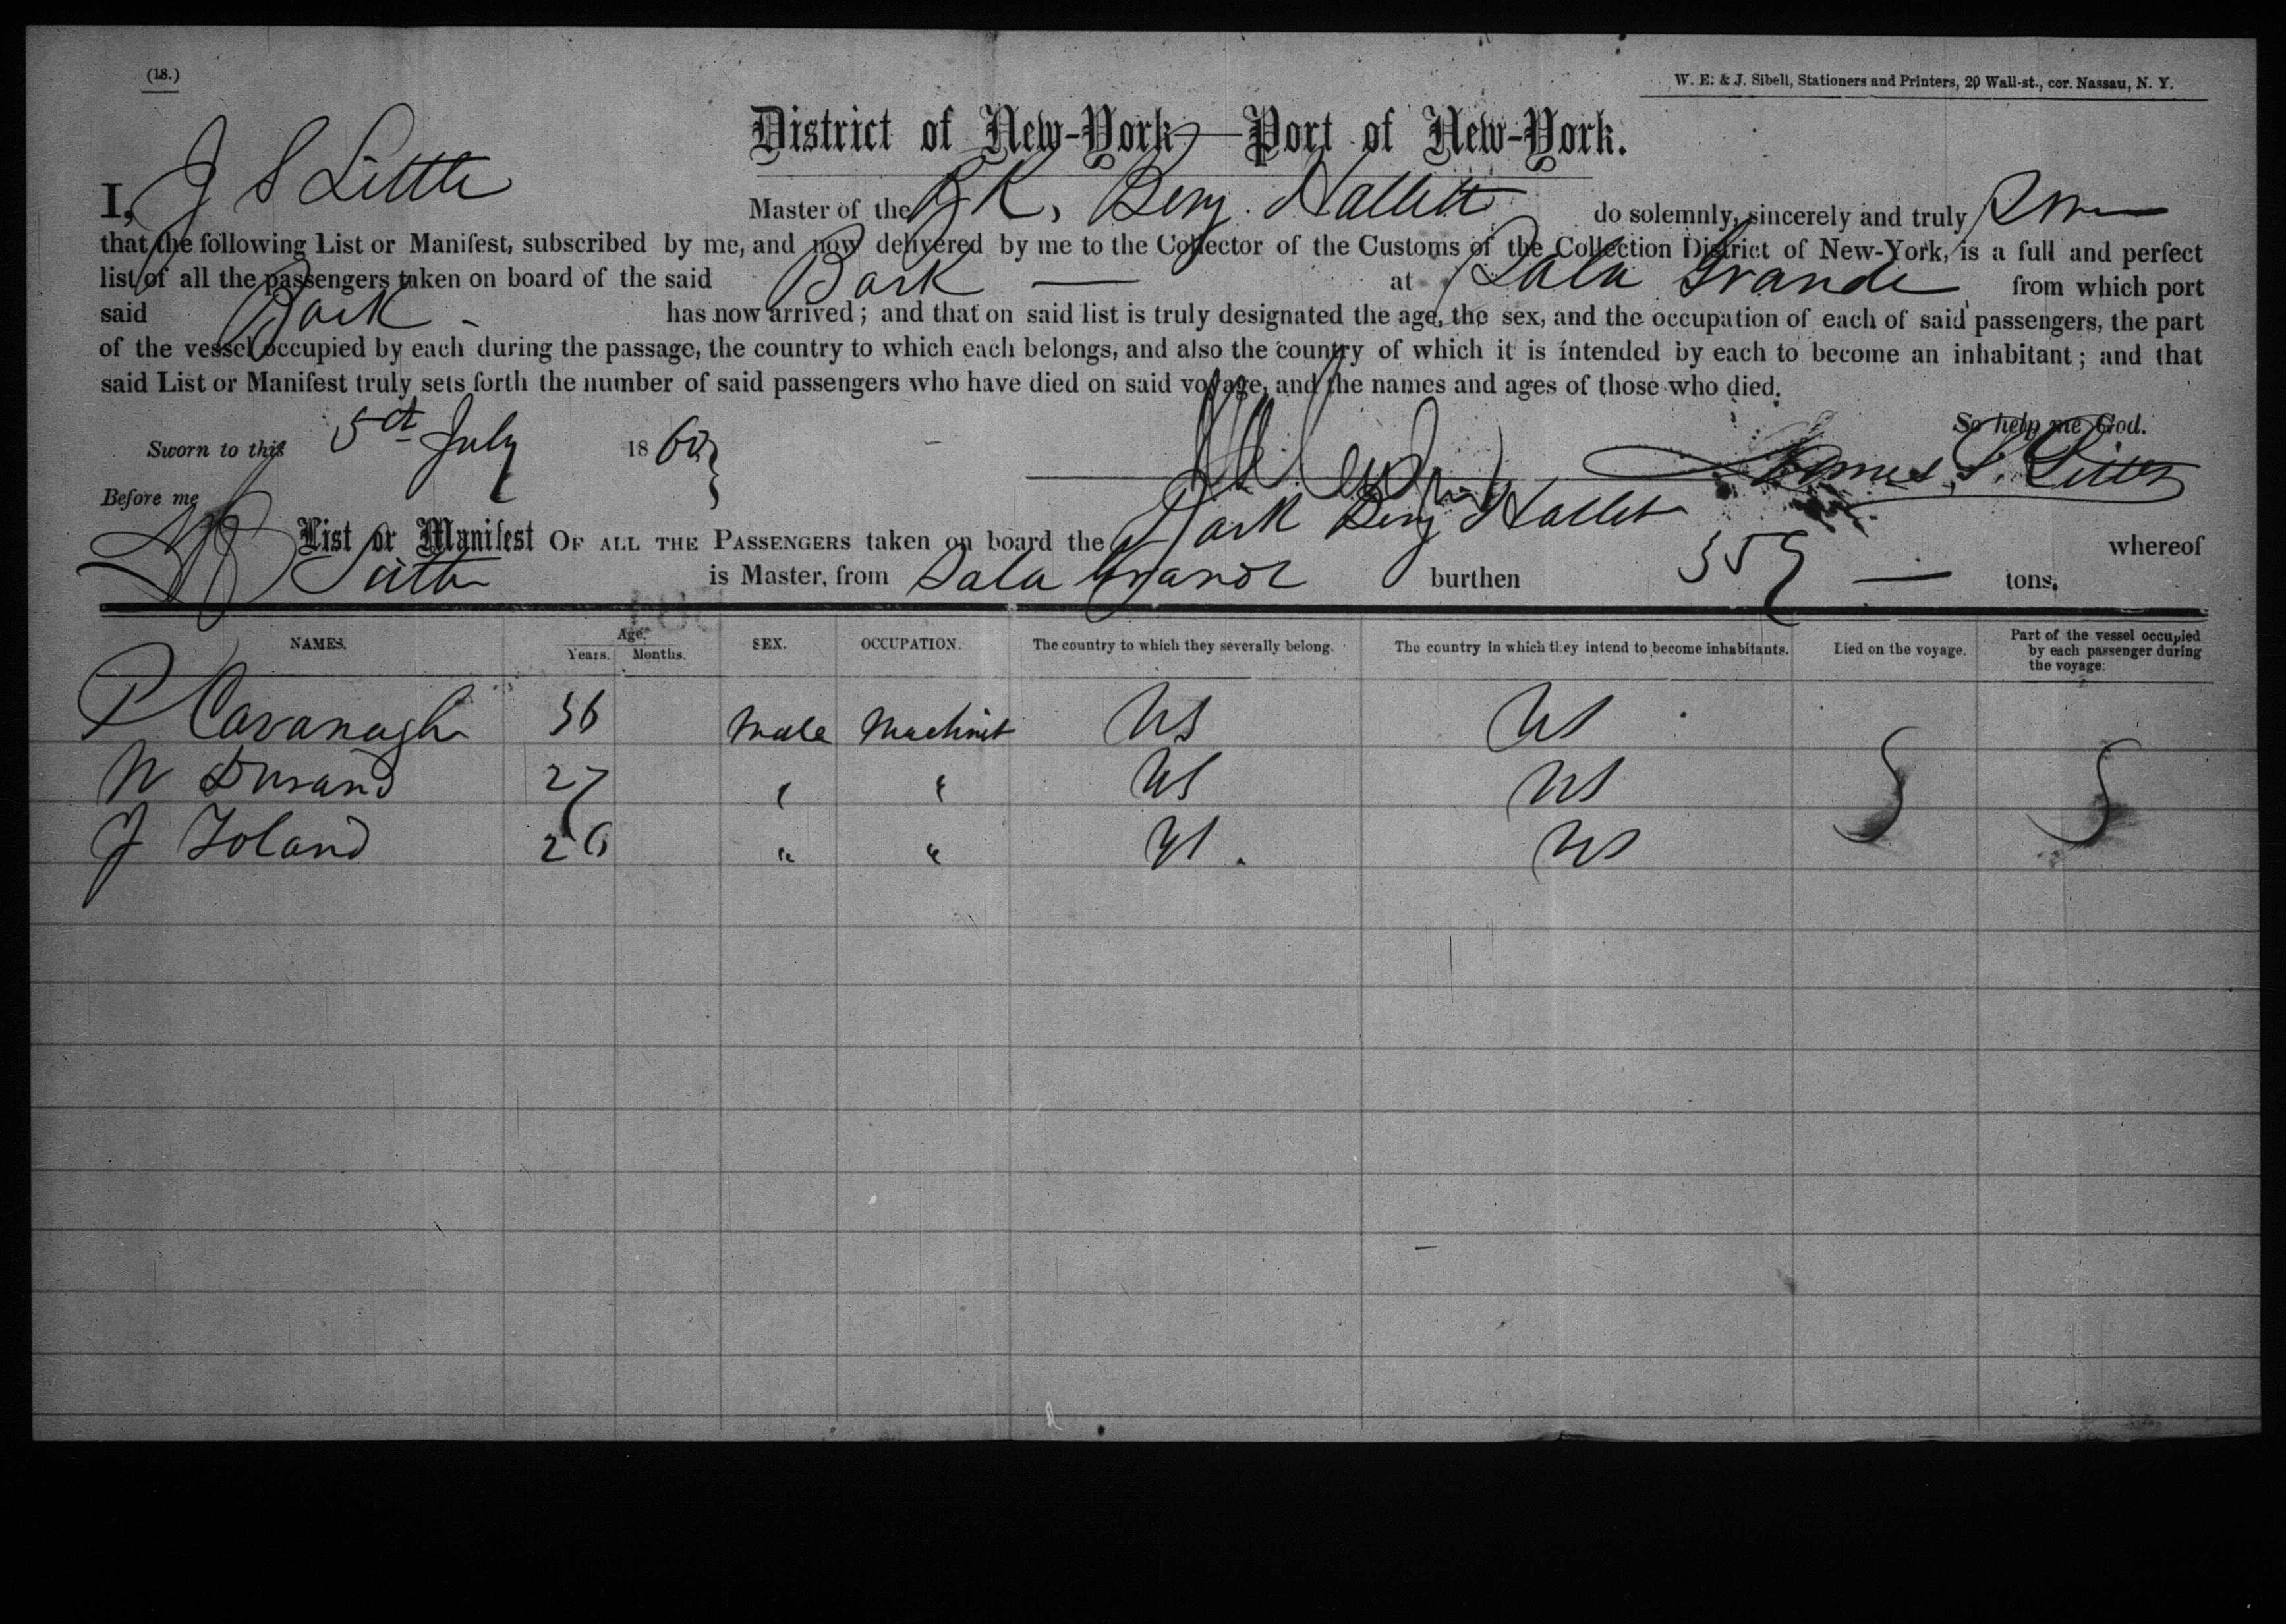 (18.)
W. E. & J. Sibell, Stationers and Printers, 20 Wall-st., cor. Nassau, N. Y.
District of New-York—Port of New-York.
I, J S Little Master of the BK, Benj. Hallett do solemnly, sincerely and truly
that the following List or Manifest, subscribed by me, and now delivered by me to the Collector of the Customs of the Collection District of New-York, is a full and perfect
list of all the passengers taken on board of the said Bark — at Sala Grande from which port
said Bark - has now arrived; and that on said list is truly designated the age, the sex, and the occupation of each of said passengers, the part
of the vessel occupied by each during the passage, the country to which each belongs, and also the country of which it is intended by each to become an inhabitant; and that
said List or Manifest truly sets forth the number of said passengers who have died on said voyage, and the names and ages of those who died.
So help me God.
Sworn to this 5 July 1860
James S. Little
Before me
List or Manifest OF ALL THE PASSENGERS taken on board the Bark Benj Hallet whereof
is Master, from Sala Grande burthen tons.
NAMES. Age. Years. Months. SEX. OCCUPATION. The country to which they severally belong. The country in which they intend to become inhabitants. Died on the voyage. Part of the vessel occupied by each passenger during the voyage.
P Cavanagh 36 Male Machinist US US
W Durand 27 " " US US
J Toland 26 " " US. US